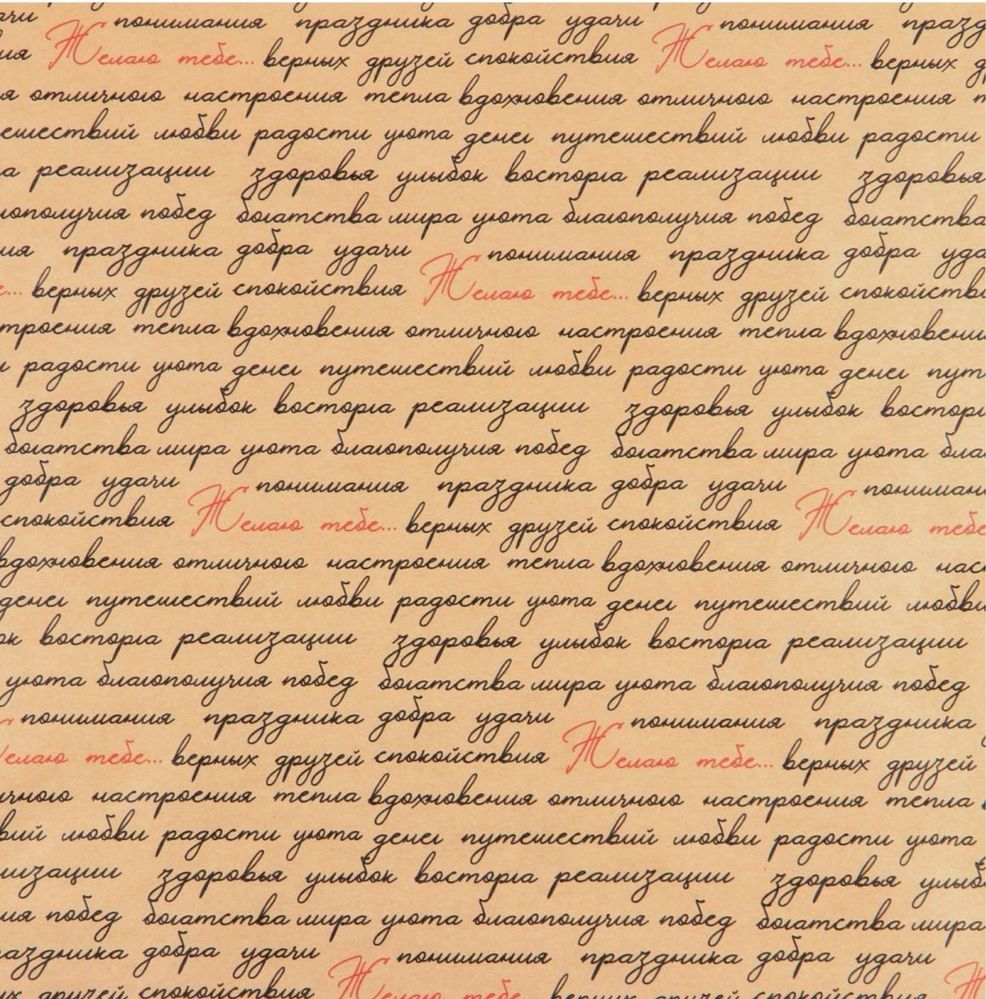 удачи понимания праздника добра удачи понимания
Желаю тебе... верных друзей спокойствия Желаю тебе... верных
отличного настроения тепла вдохновения отличного настроения
любви радости уюта денег путешествий любви радости
реализации здоровья улыбок восторга реализации здоровья
побед богатства мира уюта благополучия побед богатства
праздника добра удачи понимания праздника добра
верных друзей спокойствия Желаю тебе... верных
тепла вдохновения отличного настроения тепла
радости уюта денег путешествий любви радости уюта денег
здоровья улыбок восторга реализации здоровья улыбок
богатства мира уюта благополучия побед богатства мира уюта
добра удачи понимания праздника добра удачи
спокойствия Желаю тебе... верных друзей спокойствия Желаю
вдохновения отличного настроения тепла вдохновения отличного
денег путешествий любви радости уюта денег путешествий любви
восторга реализации здоровья улыбок восторга реализации
уюта благополучия побед богатства мира уюта благополучия побед
понимания праздника добра удачи понимания праздника
тебе... верных друзей спокойствия Желаю тебе... верных друзей
настроения тепла вдохновения отличного настроения тепла
любви радости уюта денег путешествий любви радости уюта
здоровья улыбок восторга реализации здоровья
побед богатства мира уюта благополучия побед богатства мира
добра удачи понимания праздника добра удачи
друзей спокойствия Желаю тебе верных друзей спокойствия